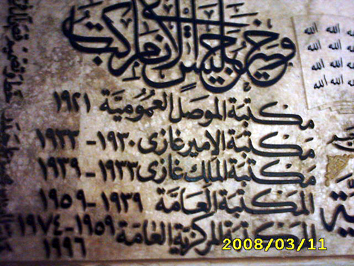 وخير جليس في الأنام كتاب
مكتبة الموصل العمومية ١٩٢١
مكتبة الامير غازي ١٩٣٠ - ١٩٣٣
مكتبة الملك غازي ١٩٣٣ - ١٩٣٩
المكتبة العامة ١٩٣٩ - ١٩٥٩
المكتبة المركزية العامة ١٩٥٩ - ١٩٧٤
١٩٩٦
الله الله الله
2008/03/11